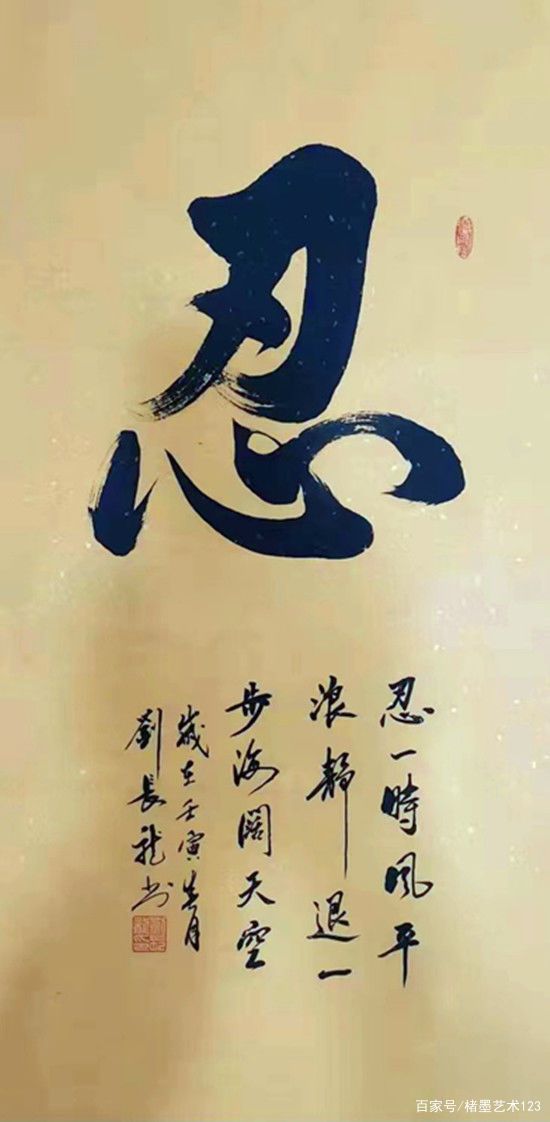 忍
忍一時風平
浪靜退一
步海闊天空
歲在壬寅春月
劉長龍书
百家号/楮墨艺术123